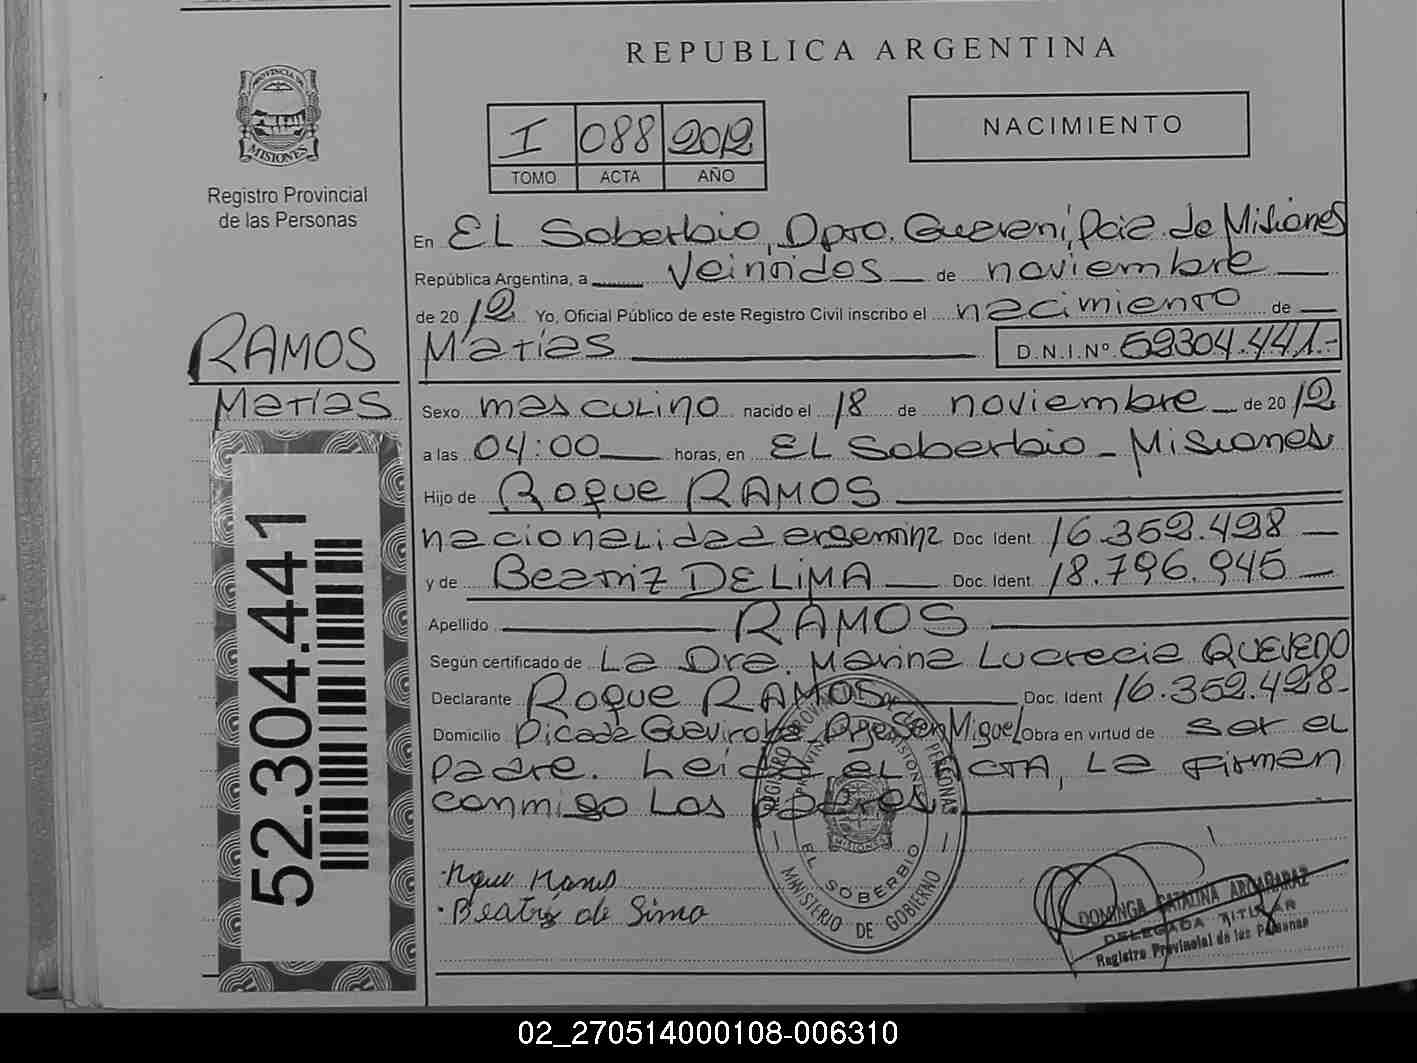 REPUBLICA ARGENTINA
PROVINCIA DE
MISIONES
Registro Provincial
de las Personas
I 088 2012
TOMO ACTA AÑO
NACIMIENTO
En EL Soberbio, Dpto. Guaraní, Pcia. de Misiones
República Argentina, a Veintidos de noviembre
de 2012 Yo, Oficial Público de este Registro Civil inscribo el nacimiento de
Matías D.N.I.Nº 52304.441.-
RAMOS
Matías
Sexo masculino nacido el 18 de noviembre de 2012
a las 04:00 horas, en EL Soberbio - Misiones
Hijo de Roque RAMOS
nacionalidad argentina Doc. Ident. 16.352.428
y de Beatriz DE LIMA Doc. Ident. 18.796.945
Apellido RAMOS
Según certificado de La Dra. Marina Lucrecia QUEVEDO
Declarante Roque RAMOS Doc. Ident 16.352.428-
Domicilio Picada Guaviroba - Pje San Miguel Obra en virtud de ser el
padre. Leida el ACTA, La firman
conmigo Los padres.
52.304.441
REGISTRO PROVINCIAL DE LAS PERSONAS
PROVINCIA DE MISIONES
MISIONES
EL SOBERBIO
MINISTERIO DE GOBIERNO
Roque Ramos
Beatriz de Lima
DOMINGA CATALINA ARGAÑARAZ
DELEGADA TITULAR
Registro Provincial de las Personas
02_270514000108-006310